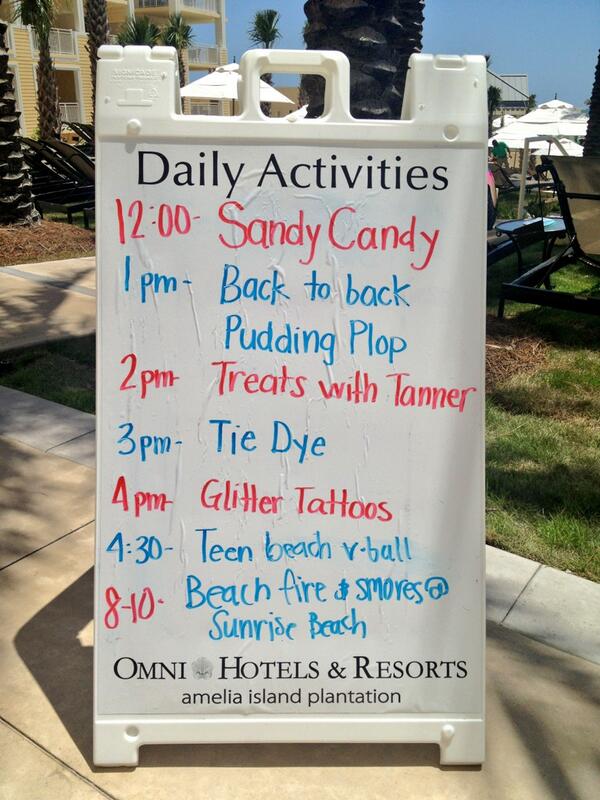 Daily Activities
12:00- Sandy Candy
1pm- Back to back
Pudding Plop
2pm- Treats with Tanner
3pm- Tie Dye
4pm- Glitter Tattoos
4:30- Teen beach v-ball
8-10- Beach fire & smores @
Sunrise Beach
OMNI HOTELS & RESORTS
amelia island plantation